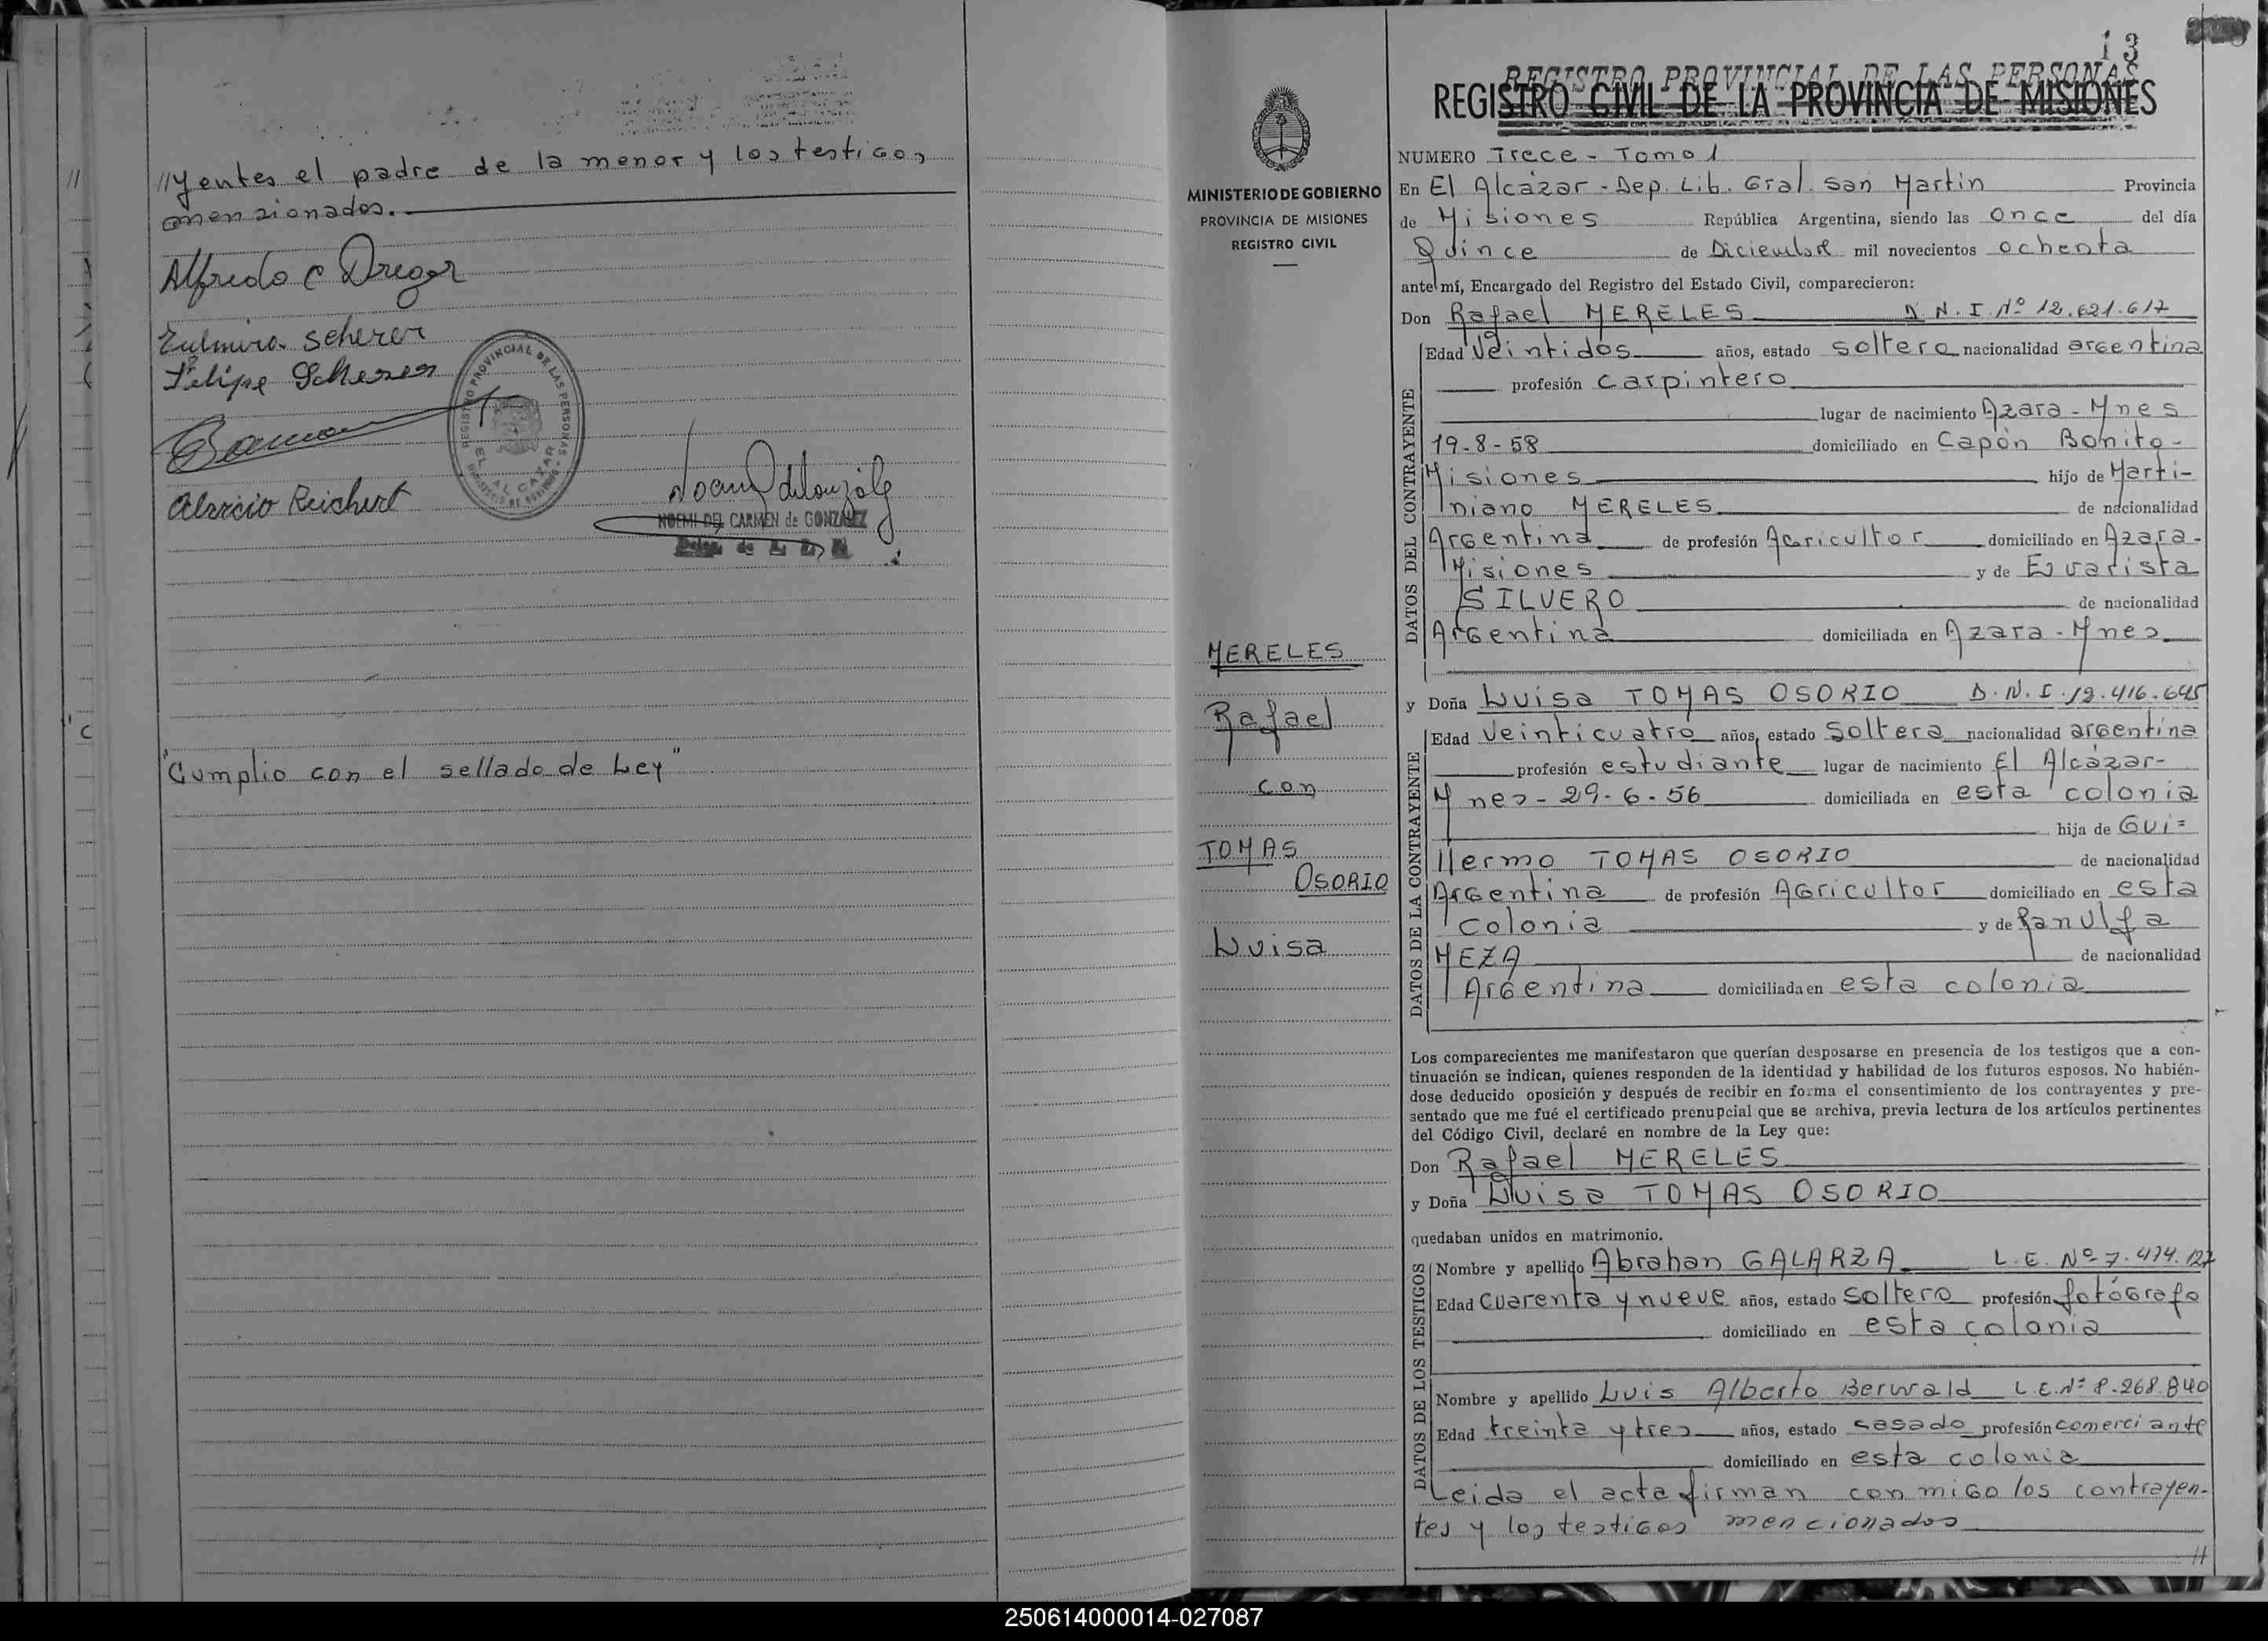 //yentes el padre de la menor y los testigos
mencionados.
Alfredo C Dreger
Zulmira Scherer
Felipe Scherer
REGISTRO PROVINCIAL DE LAS PERSONAS
EL ALCAZAR
Alarcio Reichert
NOEMI DEL CARMEN de GONZALEZ
"Cumplio con el sellado de Ley"
13
REGISTRO PROVINCIAL DE LAS PERSONAS
REGISTRO CIVIL DE LA PROVINCIA DE MISIONES
MINISTERIO DE GOBIERNO
PROVINCIA DE MISIONES
REGISTRO CIVIL
MERELES
Rafael
con
TOMAS
OSORIO
Luisa
NUMERO Trece - Tomo 1
En El Alcázar - Dep. Lib. Gral. San Martin Provincia
de Misiones República Argentina, siendo las once del día
Quince de Diciembre mil novecientos ochenta
ante mí, Encargado del Registro del Estado Civil, comparecieron:
Don Rafael MERELES D.N.I. Nº 12.621.617
DATOS DEL CONTRAYENTE
Edad Veintidos años, estado soltero nacionalidad argentina
profesión carpintero
lugar de nacimiento Azara - Mnes
19-8-58 domiciliado en Capón Bonito -
Misiones hijo de Marti-
niano MERELES de nacionalidad
Argentina de profesión Agricultor domiciliado en Azara -
Misiones y de Evarista
SILVERO de nacionalidad
Argentina domiciliada en Azara - Mnes
y Doña Luisa TOMAS OSORIO D.N.I. 12.416.645
DATOS DE LA CONTRAYENTE
Edad Veinticuatro años, estado Soltera nacionalidad argentina
profesión estudiante lugar de nacimiento El Alcázar -
Mnes - 29-6-56 domiciliada en esta colonia
hija de Gui=
llermo TOMAS OSORIO de nacionalidad
Argentina de profesión Agricultor domiciliado en esta
colonia y de Ranulfa
MEZA de nacionalidad
Argentina domiciliada en esta colonia
Los comparecientes me manifestaron que querían desposarse en presencia de los testigos que a con-
tinuación se indican, quienes responden de la identidad y habilidad de los futuros esposos. No habién-
dose deducido oposición y después de recibir en forma el consentimiento de los contrayentes y pre-
sentado que me fué el certificado prenupcial que se archiva, previa lectura de los artículos pertinentes
del Código Civil, declaré en nombre de la Ley que:
Don Rafael MERELES
y Doña Luisa TOMAS OSORIO
quedaban unidos en matrimonio.
DATOS DE LOS TESTIGOS
Nombre y apellido Abrahan GALARZA L.E. Nº 7.474.127
Edad Cuarenta y nueve años, estado soltero profesión fotógrafo
domiciliado en esta colonia
Nombre y apellido Luis Alberto Berwald L.E. Nº 8.268.840
Edad treinta y tres años, estado casado profesión comerciante
domiciliado en esta colonia
Leida el acta firman conmigo los contrayen-
tes y los testigos mencionados
//
250614000014-027087